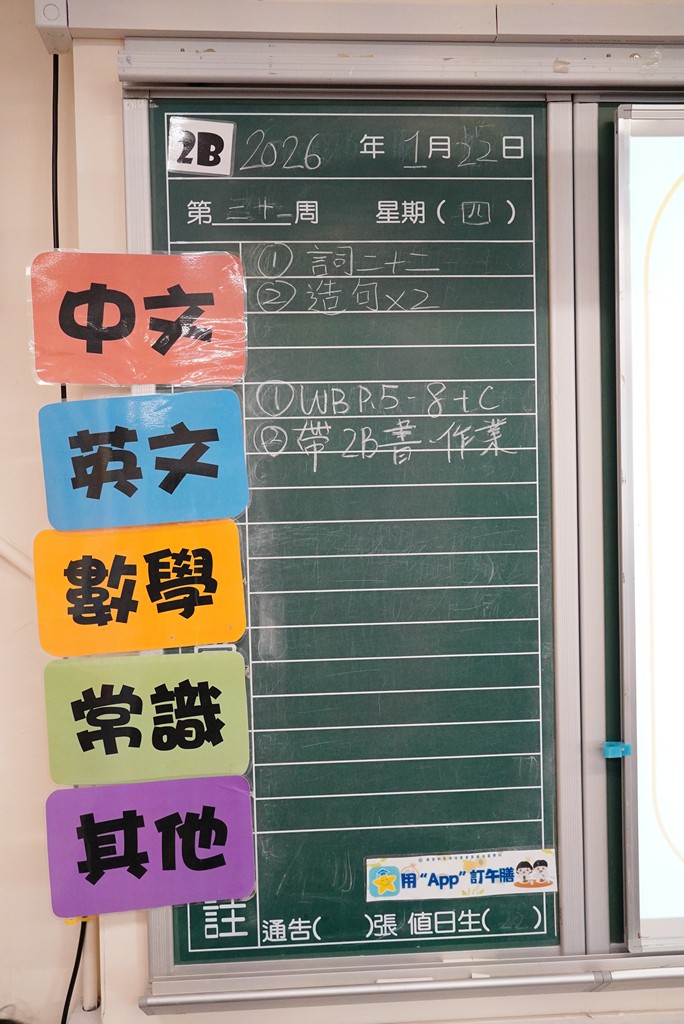 2B 2026 年 1月22日
第二十一周 星期（四）
中文
① 詞二十二
② 造句x2
英文
① WB P.5-8+C
② 帶2B書、作業
數學
常識
其他
用“App”訂午膳
註 通告( )張 值日生(22)